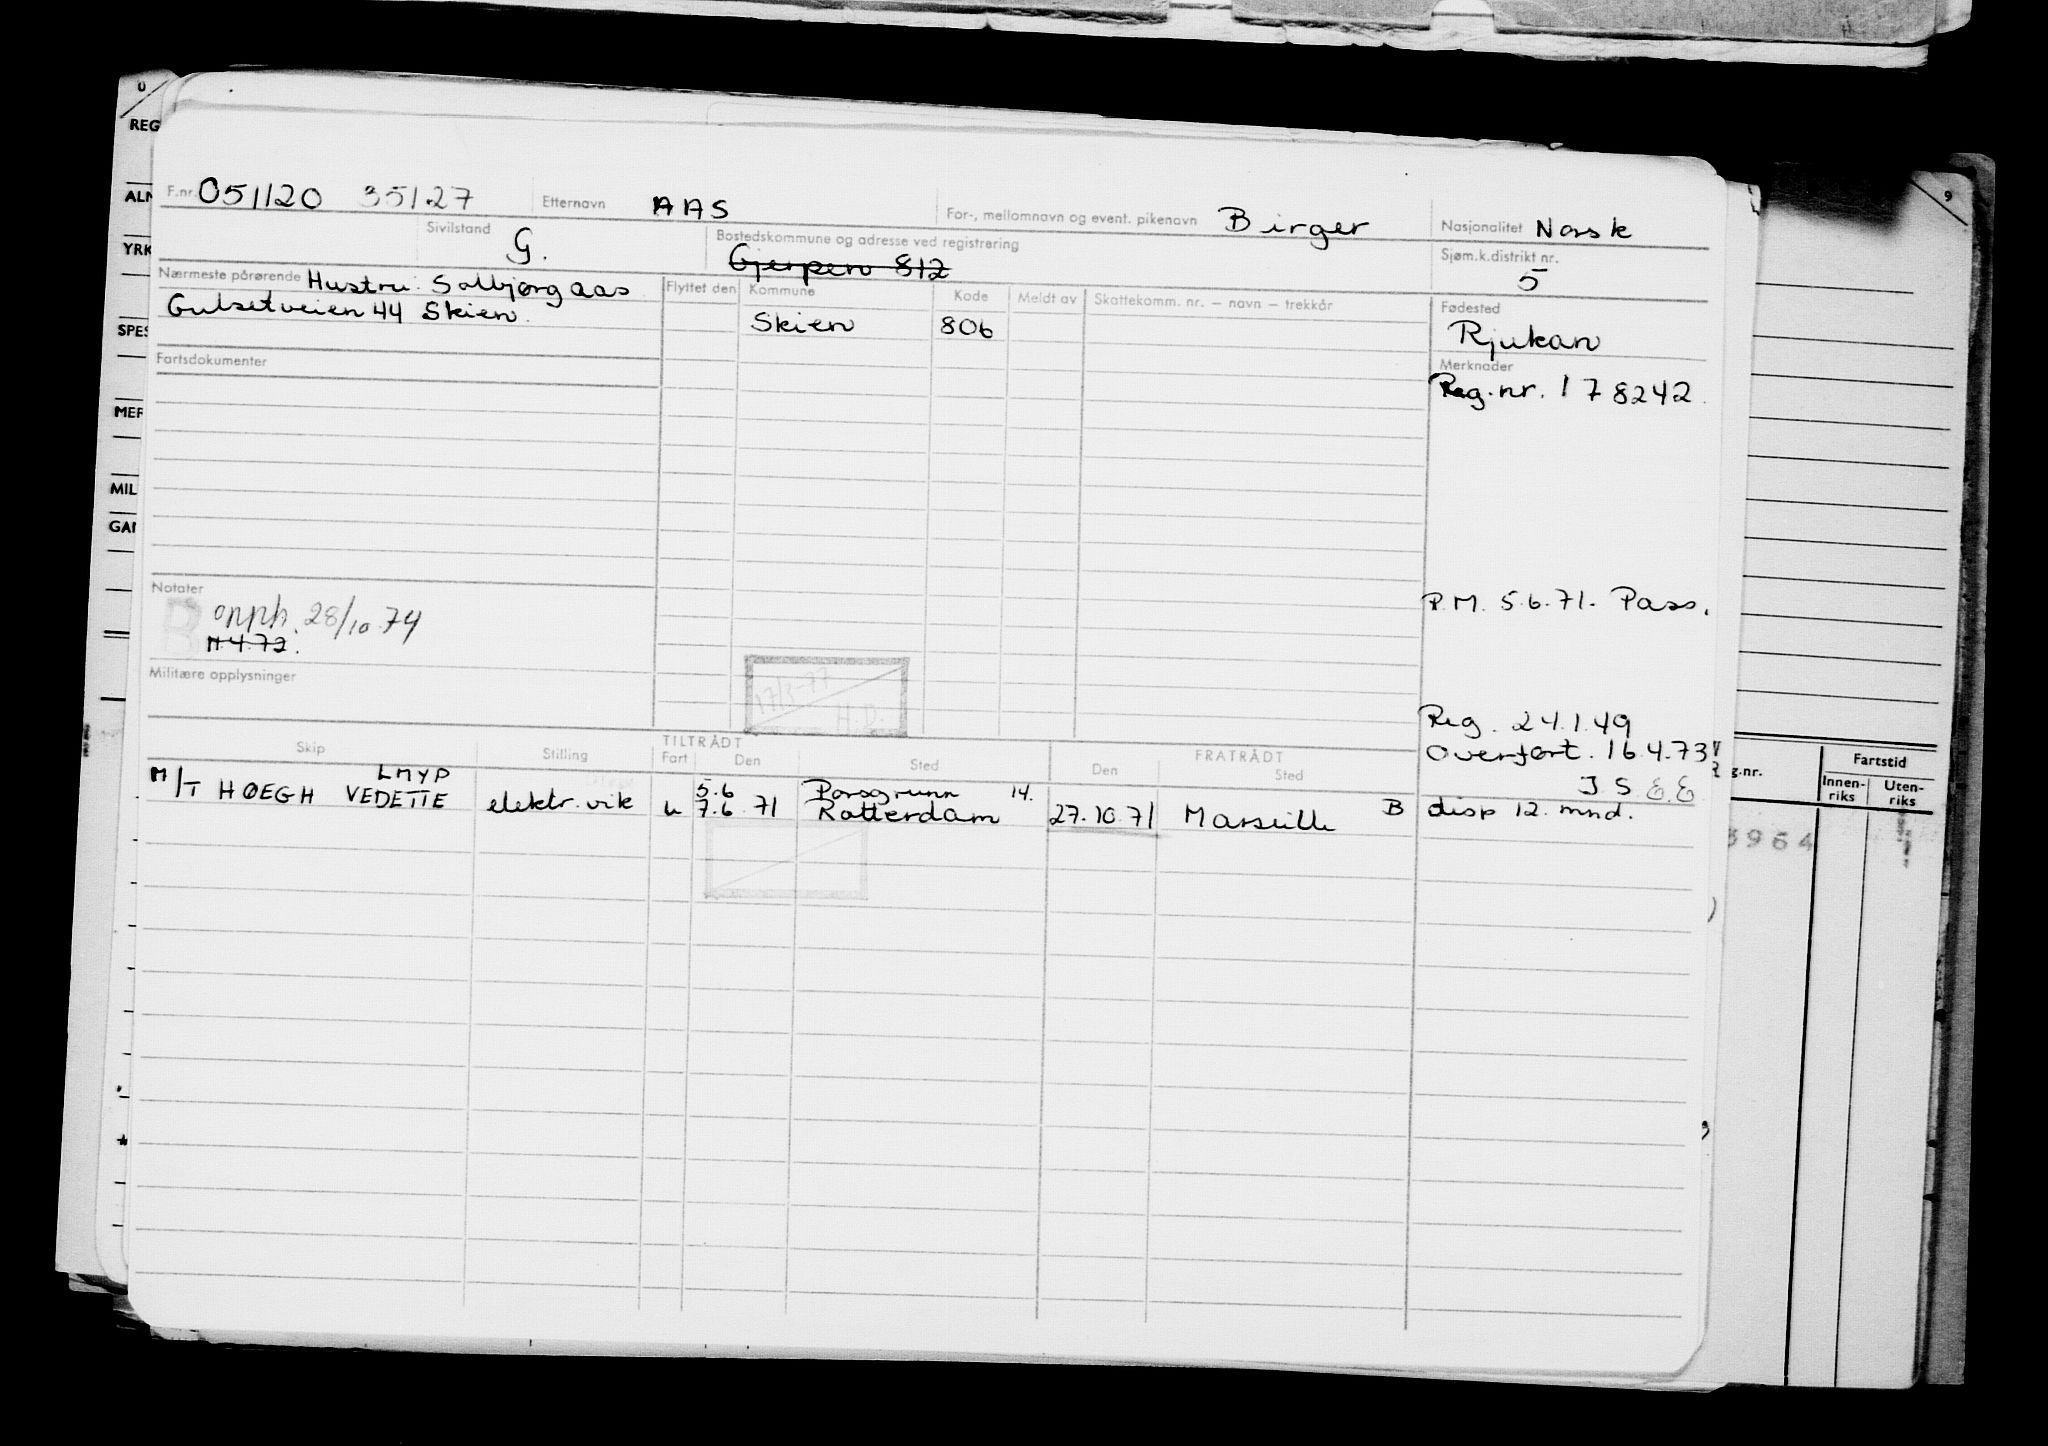 F.nr. 051120 35127 Etternavn AAS For-, mellomnavn og event. pikenavn Birger Nasjonalitet Norsk
Sivilstand G. Bostedskommune og adresse ved registrering Gjerpen 812 Sjøm.k.distrikt nr. 5
Nærmeste pårørende Hustru: Solbjørg Aas
Gulsetveien 44 Skien.
Flyttet den Kommune Kode Meldt av Skattekomm. nr. – navn – trekkår
Skien 806
Fødested
Rjukan
Merknader
Reg.nr. 178242
Fartsdokumenter
P.M. 5.6.71. Pass.
Notater
B opph. 28/10.74
M.4.72.
Militære opplysninger
17/3-77
H.D.
Reg. 24.1.49
Overført. 16.4.73
J S
Skip Stilling TILTRÅDT Fart Den Sted FRATRÅDT Den Sted
LMYP 5.6 Porsgrunn 14.
M/T HØEGH VEDETTE elektr. vik u 7.6.71 Rotterdam 27.10.71 Marseille B disp 12. mnd.
0
REG
ALM
YRK
SPES
MER
MIL
GAI
9
g.nr.
Fartstid
Innen-
riks
Uten-
riks
3964